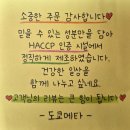 소중한 주문 감사합니다♥
믿을 수 있는 성분만을 담아
HACCP 인증 시설에서
정직하게 제조하였습니다.
건강한 일상을
함께 나누고 싶어요.
♥고객님의 리뷰는 큰 힘이 됩니다♥
- 도로메타 -